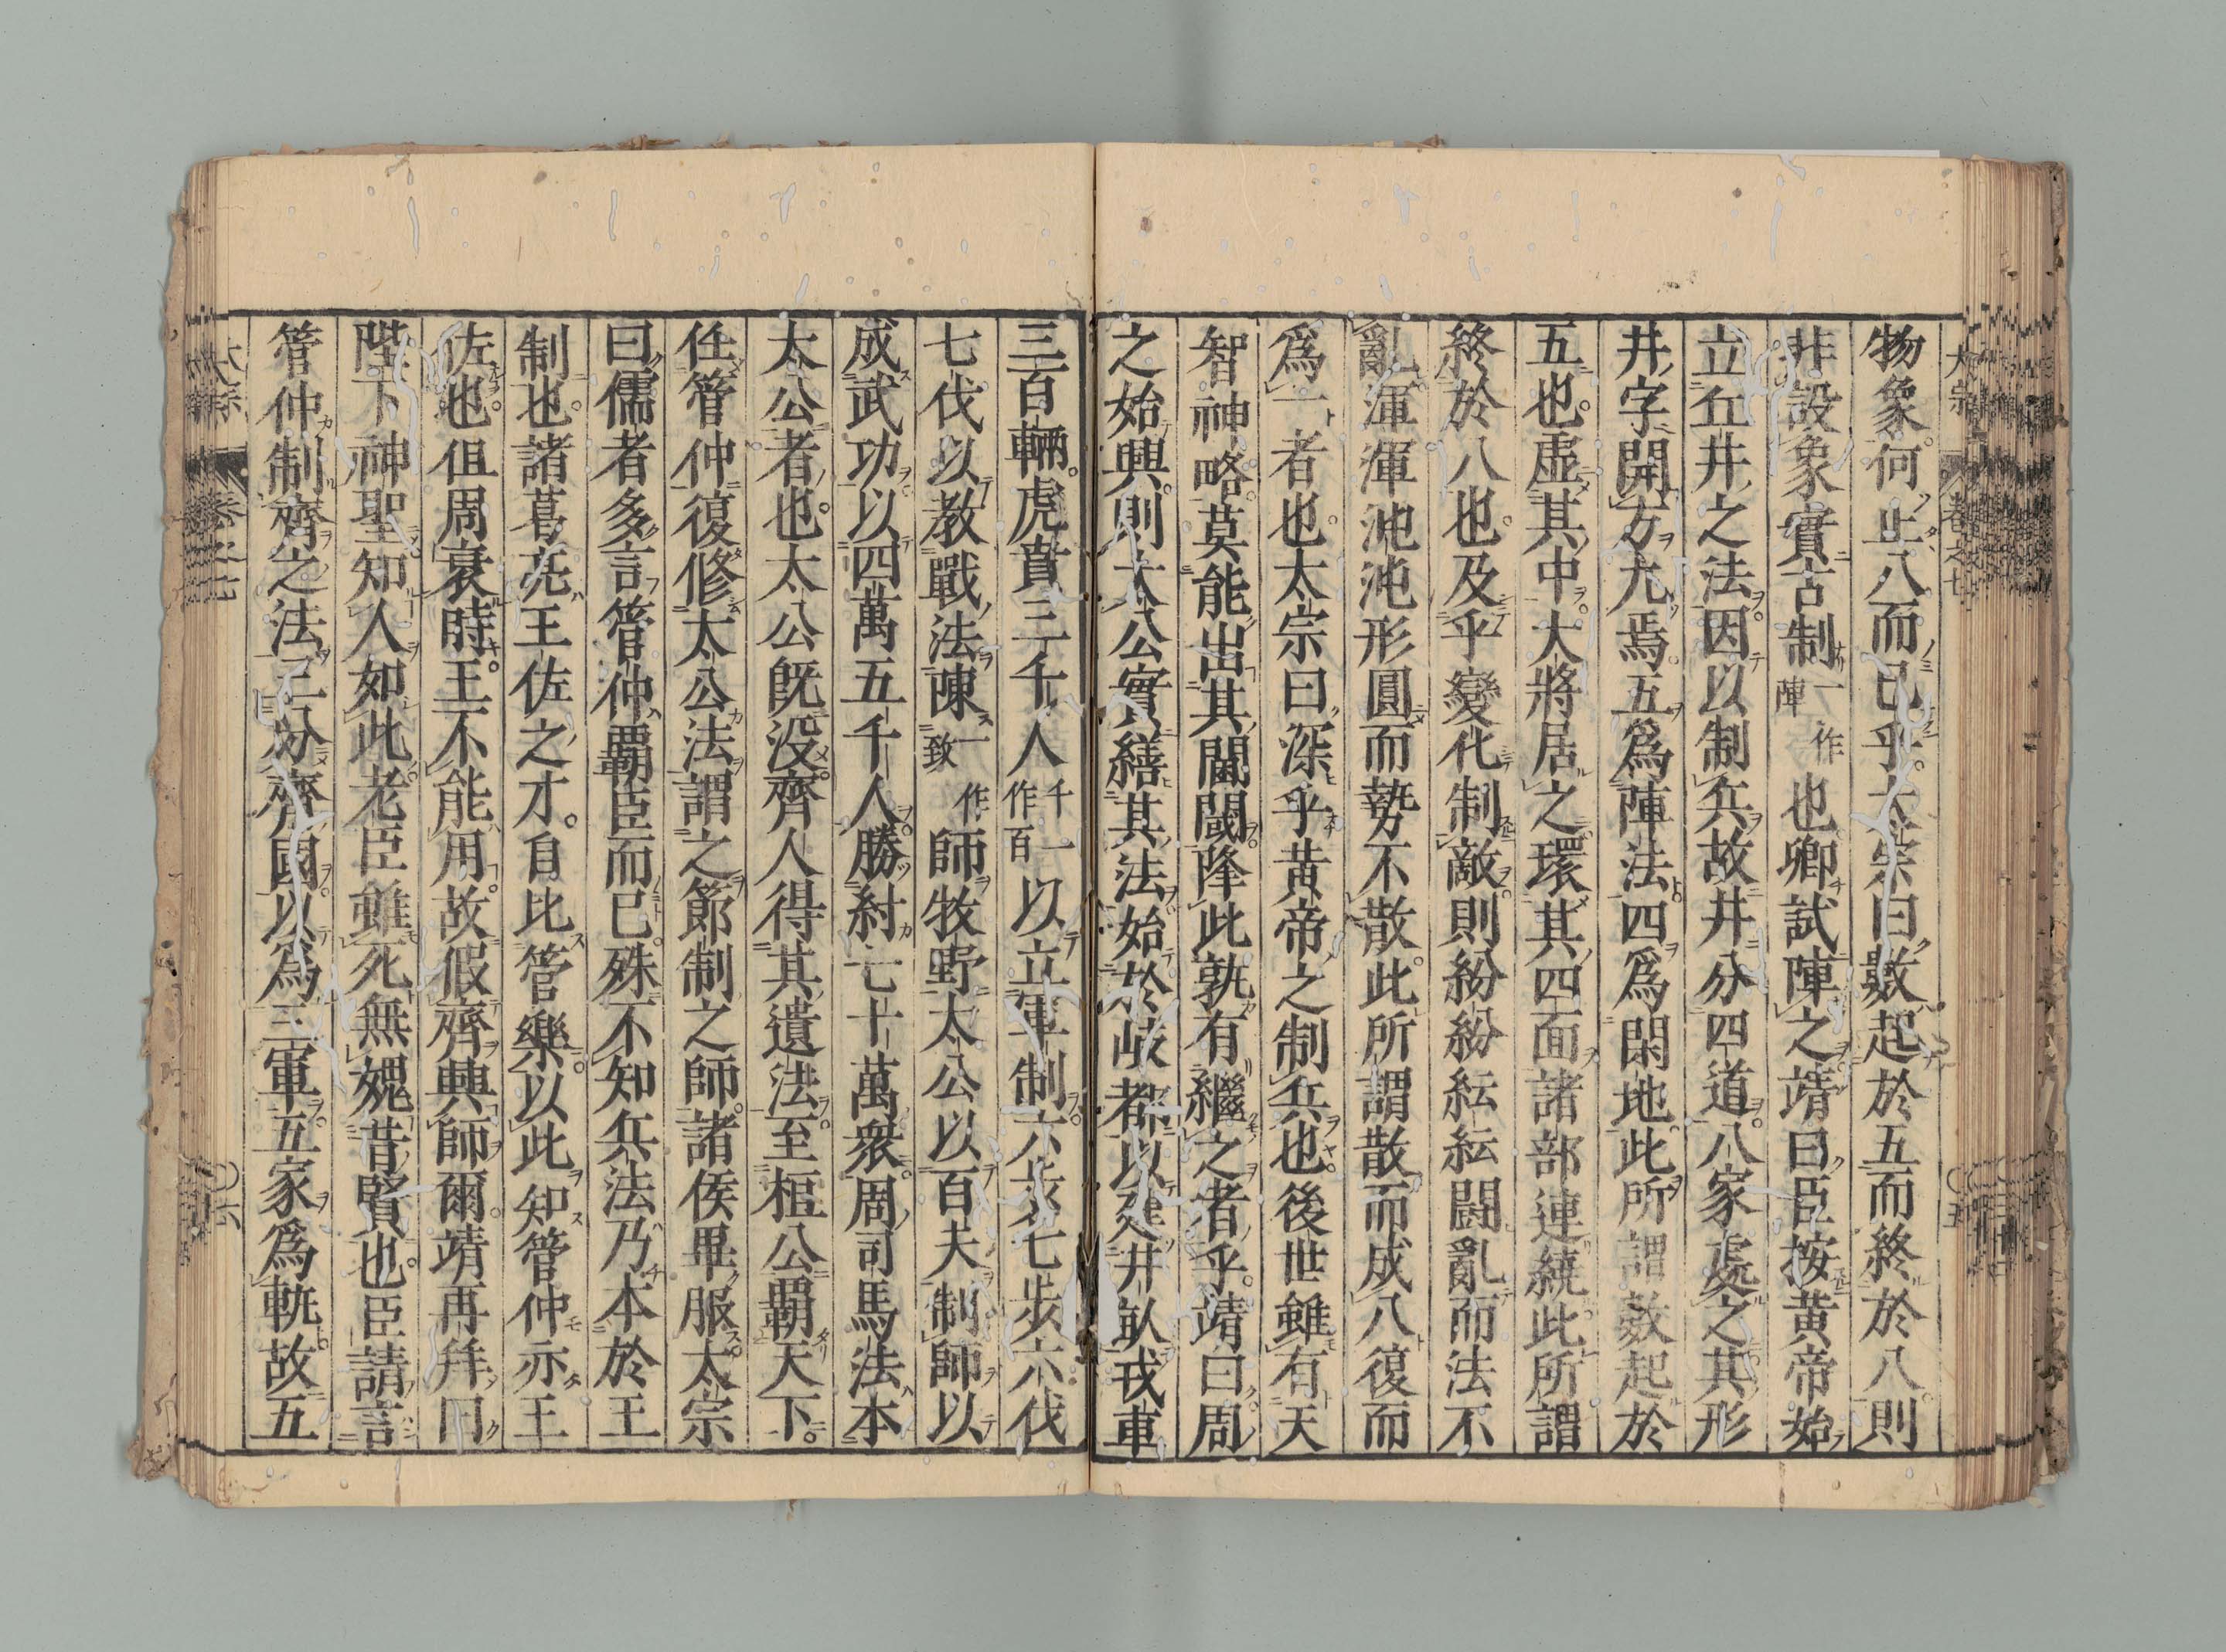 物象何止八而已乎太宗曰數起於五而終於八則
非設象實古制一作陣也卿試陣之靖曰臣按黄帝始
立丘井之法因以制兵故井分四道八家處之其形
井字開方九焉五爲陣法四爲閑地此所謂數起於
五也虛其中大將居之環其四面諸部連繞此所謂
終於八也及乎變化制敵則紛紛紜紜鬬亂而法不
亂渾渾沌沌形圓而勢不散此所謂散而成八復而
爲一者也太宗曰深乎黄帝之制兵也後世雖有天
智神略莫能出其閫閾降此孰有繼之者乎靖曰周
之始興則太公實繕其法始於岐都以建井畝戎車
三百輛虎賁三千人千一作百以立軍制六步七步六伐
七伐以教戰法陳一作致師牧野太公以百夫制師以
成武功以四萬五千人勝紂七十萬衆周司馬法本
太公者也太公既没齊人得其遺法至桓公霸天下
任管仲復修太公法謂之節制之師諸侯畢服太宗
曰儒者多言管仲霸臣而已殊不知兵法乃本於王
制也諸葛亮王佐之才自比管樂以此知管仲亦王
佐也但周衰時王不能用故假齊興師爾靖再拜曰
陛下神聖知人如此老臣雖死無媿昔賢也臣請言
管仲制齊之法三分齊國以爲三軍五家爲軌故五